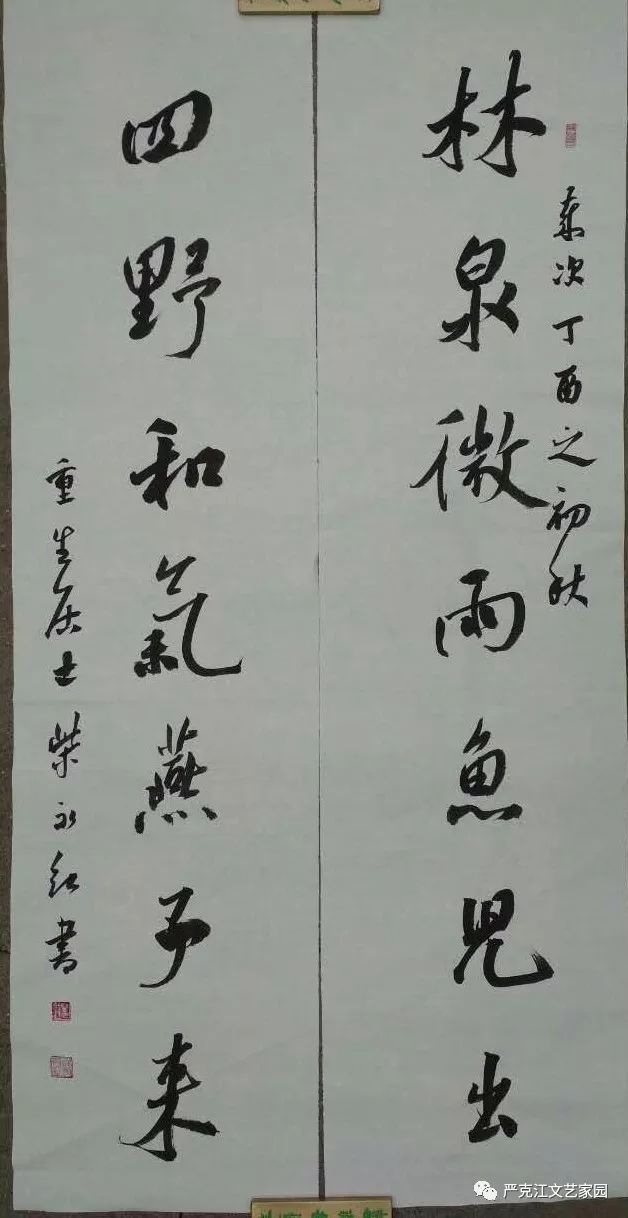 林泉微雨魚兒出
歲次丁酉之初秋
四野和氣燕子来
重生居士柴永红書
严克江文艺家园